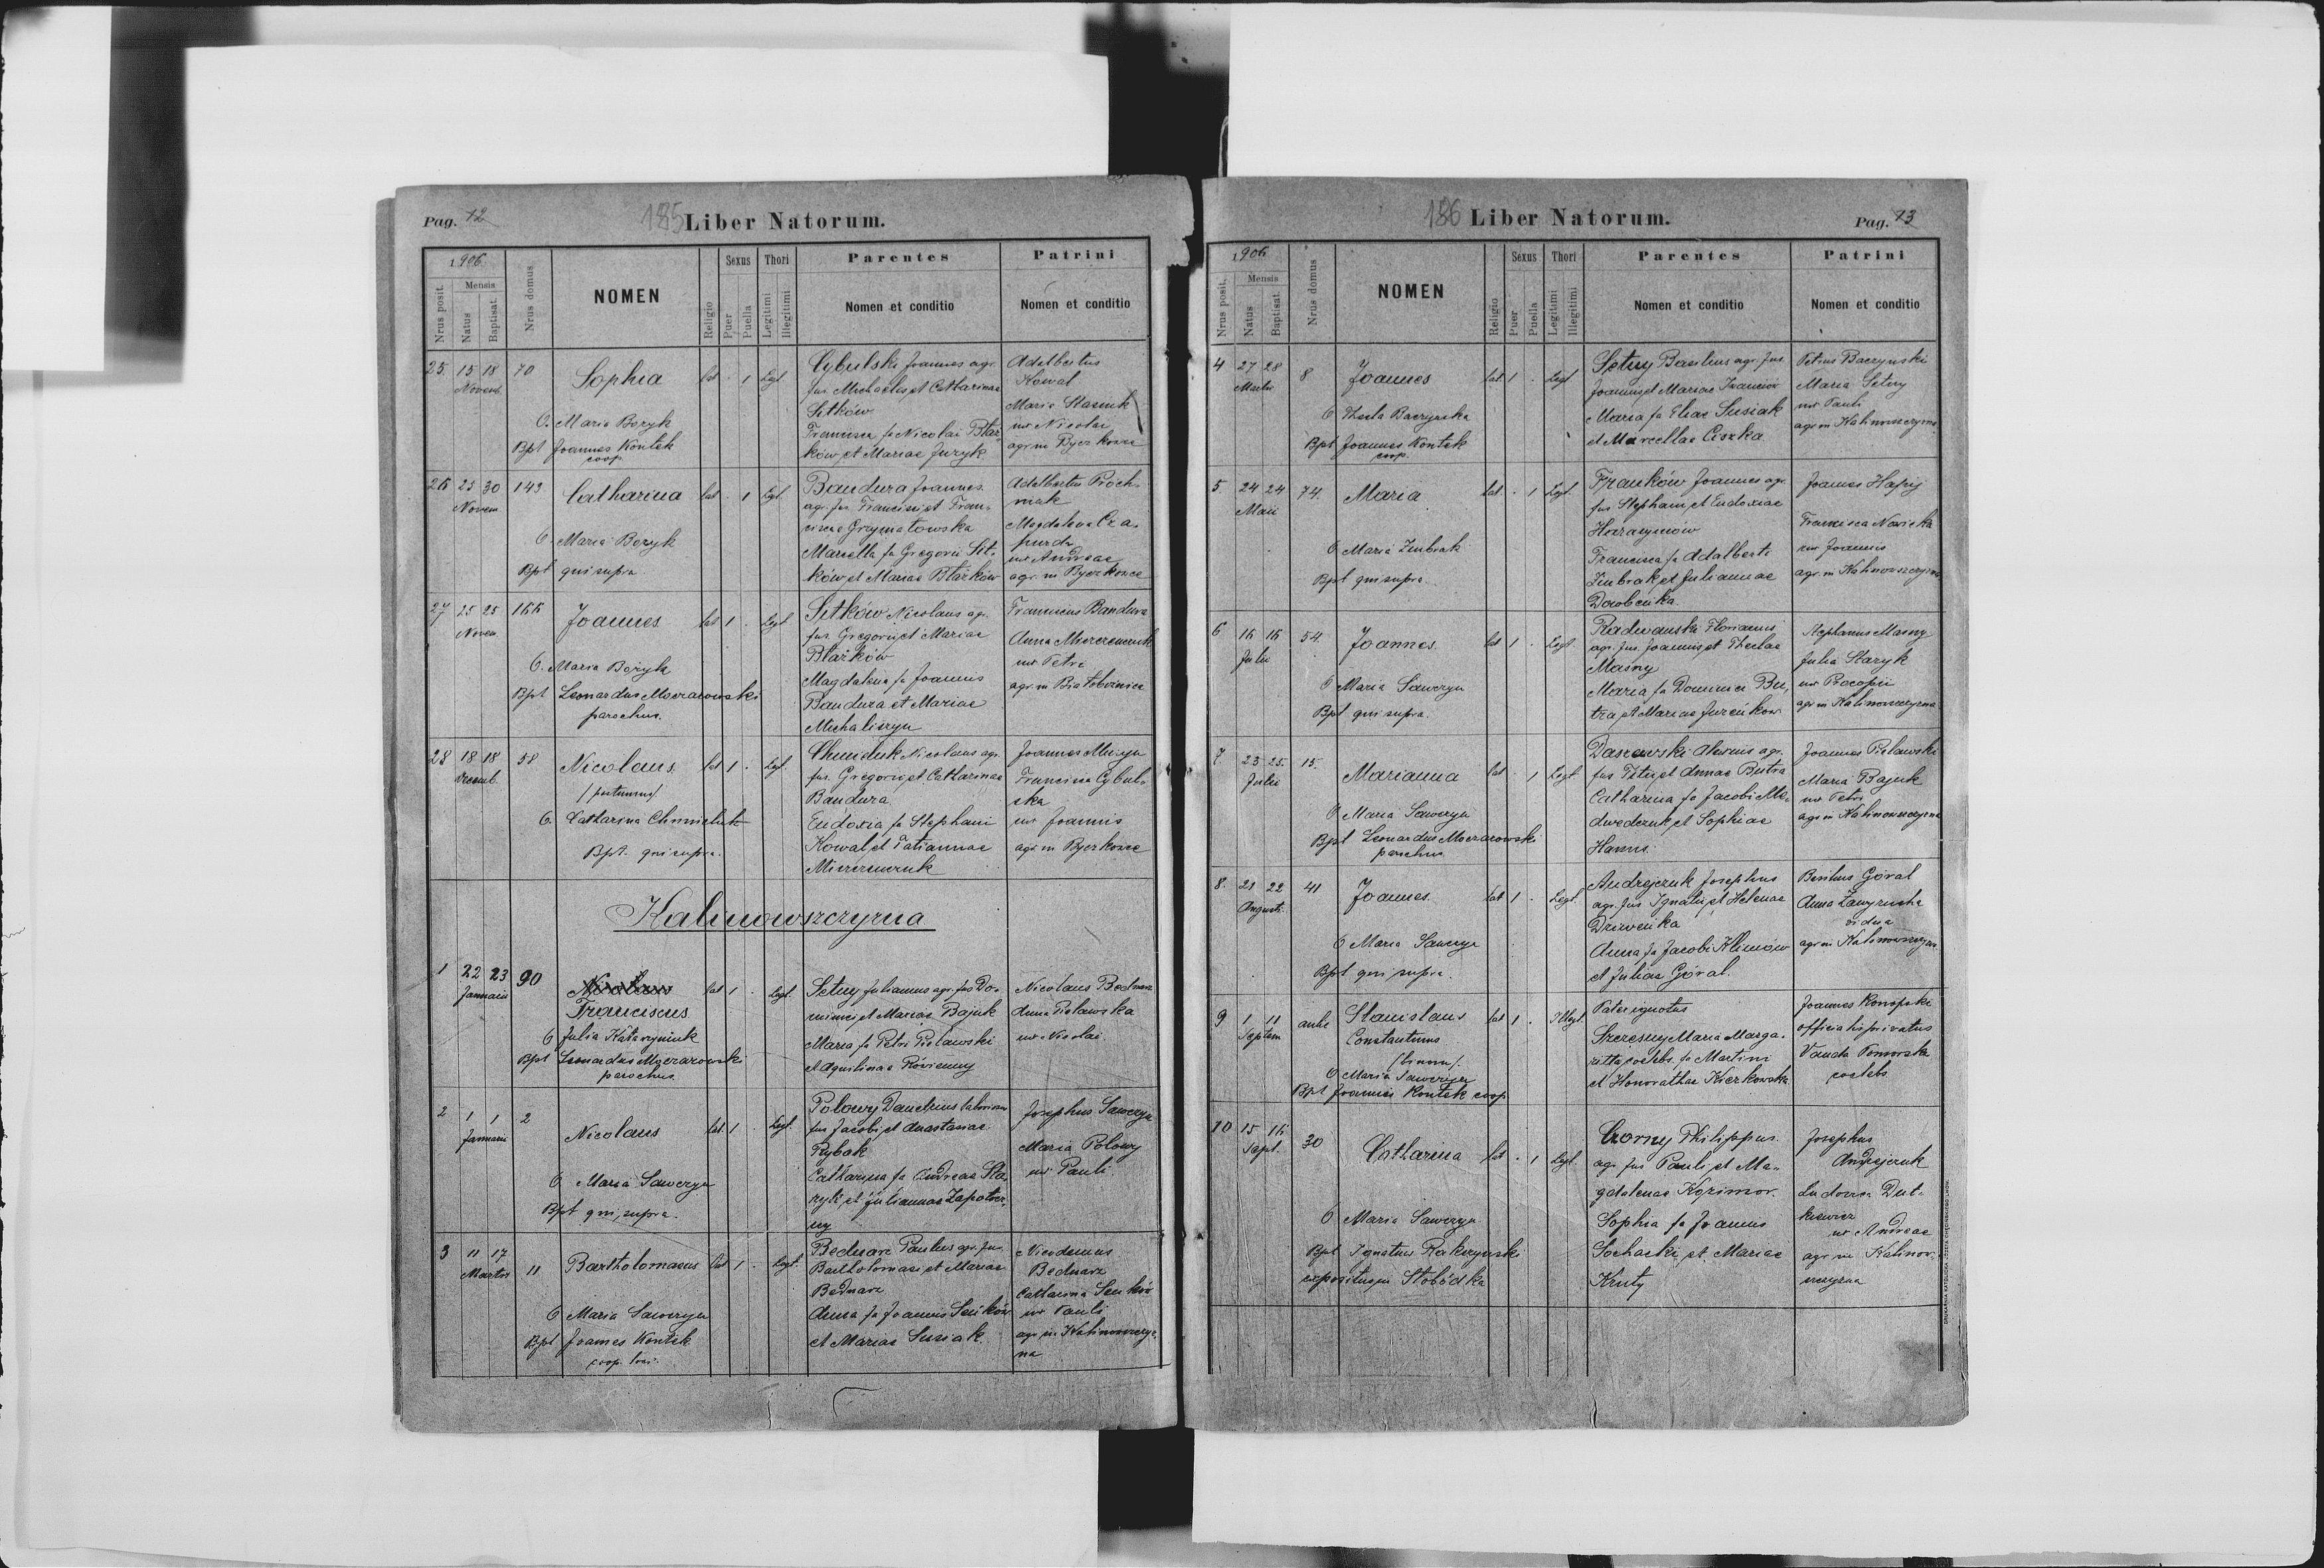 Pag. 12
185 Liber Natorum.
1906
Mensis
Nrus posit.
Natus
Baptisat.
Nrus domus
NOMEN
Religio
Sexus
Puer
Puella
Thori
Legitimi
Illegitimi
Parentes
Nomen et conditio
Patrini
Nomen et conditio
25. 15 18 70
Novemb.
Sophia
lat . 1 Legt
O. Maria Boryk
Bpt Joannes Kontek
coop.
Cybulski Joannes agr.
fus Michaelis et Catharinae
Sitków
Francisca fa Nicolai Błaż-
ków et Mariae Juryk
Adalbertus
Kowal
Maria Stasiuk
ux Nicolai
agr in Byczkowce
26 25 30 143
Novem
Catharina
lat . 1 Legt.
O. Maria Boryk
Bpt qui supra
Bandura Joannes
agr. fus Francisci et Fran-
ciscae Grzymatowska
Marcella fa Gregorii Sit-
ków et Mariae Błażków
Adalbertus Próch-
niak
Magdalena Cza-
purda
ux Andreae
agr. in Byczkowce
27 25 25 166
Novem
Joannes
lat 1 . Legt
O. Maria Boryk
Bpt Leonardus Moczarowski
parochus.
Sitków Nicolaus agr.
fus. Gregorii et Mariae
Błażków
Magdalena fa Joannis
Bandura et Mariae
Michaliszyn
Franciscus Bandura
ux Petri
agr. in Białobożnica
28 18 18 58
Decemb.
Nicolaus
lat 1 . Legt.
O. Catharina Chmieluk
Bpt. qui supra.
Nicolaus agr.
fus. Gregorii et Catharinae
Bandura
Eudoxia fa Stephani
Kowal et Tatiannae
Joannes Muzyn
Francisca Cybul-
ska
ux Joannis
agr in Byczkowce
Kalinowszczyzna
1 22 23 90
Januarii
Franciscus
lat 1 . Legt.
O Julia Katarzyniuk
Bpt Leonardus Moczarowski
parochus.
Setny Julianus agr. fus Do-
minici et Mariae Bajuk
Maria fa Petri Pielawski
et Aquilinae Rówienny
Nicolaus Bednarz
Anna Pielawska
ux Nicolai.
2 1 1 2
Januarii
Nicolaus
lat. 1 . Legt.
O Maria Saweryn
Bpt qui supra.
Polowy Demetrius
fus Jacobi et Anastasiae
Rybak
Catharina fa Andreae Sta-
ryk et Juliannae Zapotocz-
ny
Josephus Saweryn
Maria Polowy
ux Pauli
3 11 17 11
Martii
Bartholomaeus
lat 1 . Legt.
O Maria Saweryn
Bpt Joannes Kontek
coop. loci.
Bednarz Paulus agr. fus.
Bartholomaei et Mariae
Bednarz
Anna fa Joannis Seńków
et Mariae Susiak.
Nicodemus
Bednarz
Catharina Seńków
ux Pauli
agr in Kalinowszczyz-
na
186 Liber Natorum.
Pag. 13
1906
Mensis
Nrus posit.
Natus
Baptisat.
Nrus domus
NOMEN
Religio
Sexus
Puer
Puella
Thori
Legitimi
Illegitimi
Parentes
Nomen et conditio
Patrini
Nomen et conditio
4 27 28 8
Martii
Joannes
lat 1 . Legt
O Thecla Baczynska
Bpt Joannes Kontek
coop.
Setny Basilius agr. fus
Joannis et Mariae Iwanców
Maria fa Eliae Susiak
et Marcellae Ciszka
Petrus Baczynski
Maria Setny
ux Pauli
agr in Kalinowszczyzna
5 24 24 74.
Maii
Maria
lat . 1 Legt.
O Maria Zimbrak
Bpt qui supra.
Franków Joannes agr.
fus Stephani et Eudoxiae
Harasymów
Francisca fa Adalberti
Zimbrak et Juliannae
Dowbeńka.
Joannes Hapij
Francisca Nowicka
ux Joannis
agr. in Kalinowszczyzna
6 16 16 54.
Julii
Joannes.
lat 1 . Legt
O Maria Saweryn
Bpt qui supra.
Radwanski Florianus
agr. fus Joannis et Theclae
Masny
Maria fa Dominici Bu-
tra et Mariae Jureńkow
Stephanus Masny
Julia Staryk
ux Procopii
agr in Kalinowszczyzna
7. 23 25. 15.
Julii
Marianna
lat . 1 Legt
O Maria Saweryn
Bpt Leonardus Moczarowski
parochus
Daszewski Alexius agr.
fus Titi et Annae Butra
Catharina fa Jacobi Me-
dwedczuk et Sophiae
Hanus.
Joannes Pielawski
Maria Bajuk
ux Petri
agr in Kalinowszczyzna
8. 21 22 41
Augusti.
Joannes.
lat 1 . Legt.
O Maria Saweryn
Bpt qui supra.
Andrejczuk Josephus
agr. fus Ignatii et Helenae
Dziweńka
Anna fa Jacobi Klimów
et Juliae Góral.
Basilius Góral
Anna Zawyrucha
vidua
agr in Kalinowszczyzn.
9 1 11 aulae
Septem
Stanislaus
Constantinus
(binom).
lat 1 . Illegt.
O Maria Saweryn
Bpt Joannes Kontek coop
Pater ignotus
Szczesny Maria Marga-
ritta coelebs, fa Martini
et Honorathae Kierkowska
Joannes Konopski
officialis privatus
Vanda Pomorska
coelebs
10 15 16 30
Sept.
Catharina
lat . 1 Legt.
O Maria Saweryn
Bpt Ignatius Rakszynski
expositus in Słobódka
Czorny Philippus
agr fus Pauli et Ma-
gdalenae Kozimor.
Sophia fa Joannis
Sochacki et Mariae
Kruty
Josephus
Andrejczuk
Ludovica Dut-
kiewicz
ux Andreae
agr in Kalinow-
szczyzna